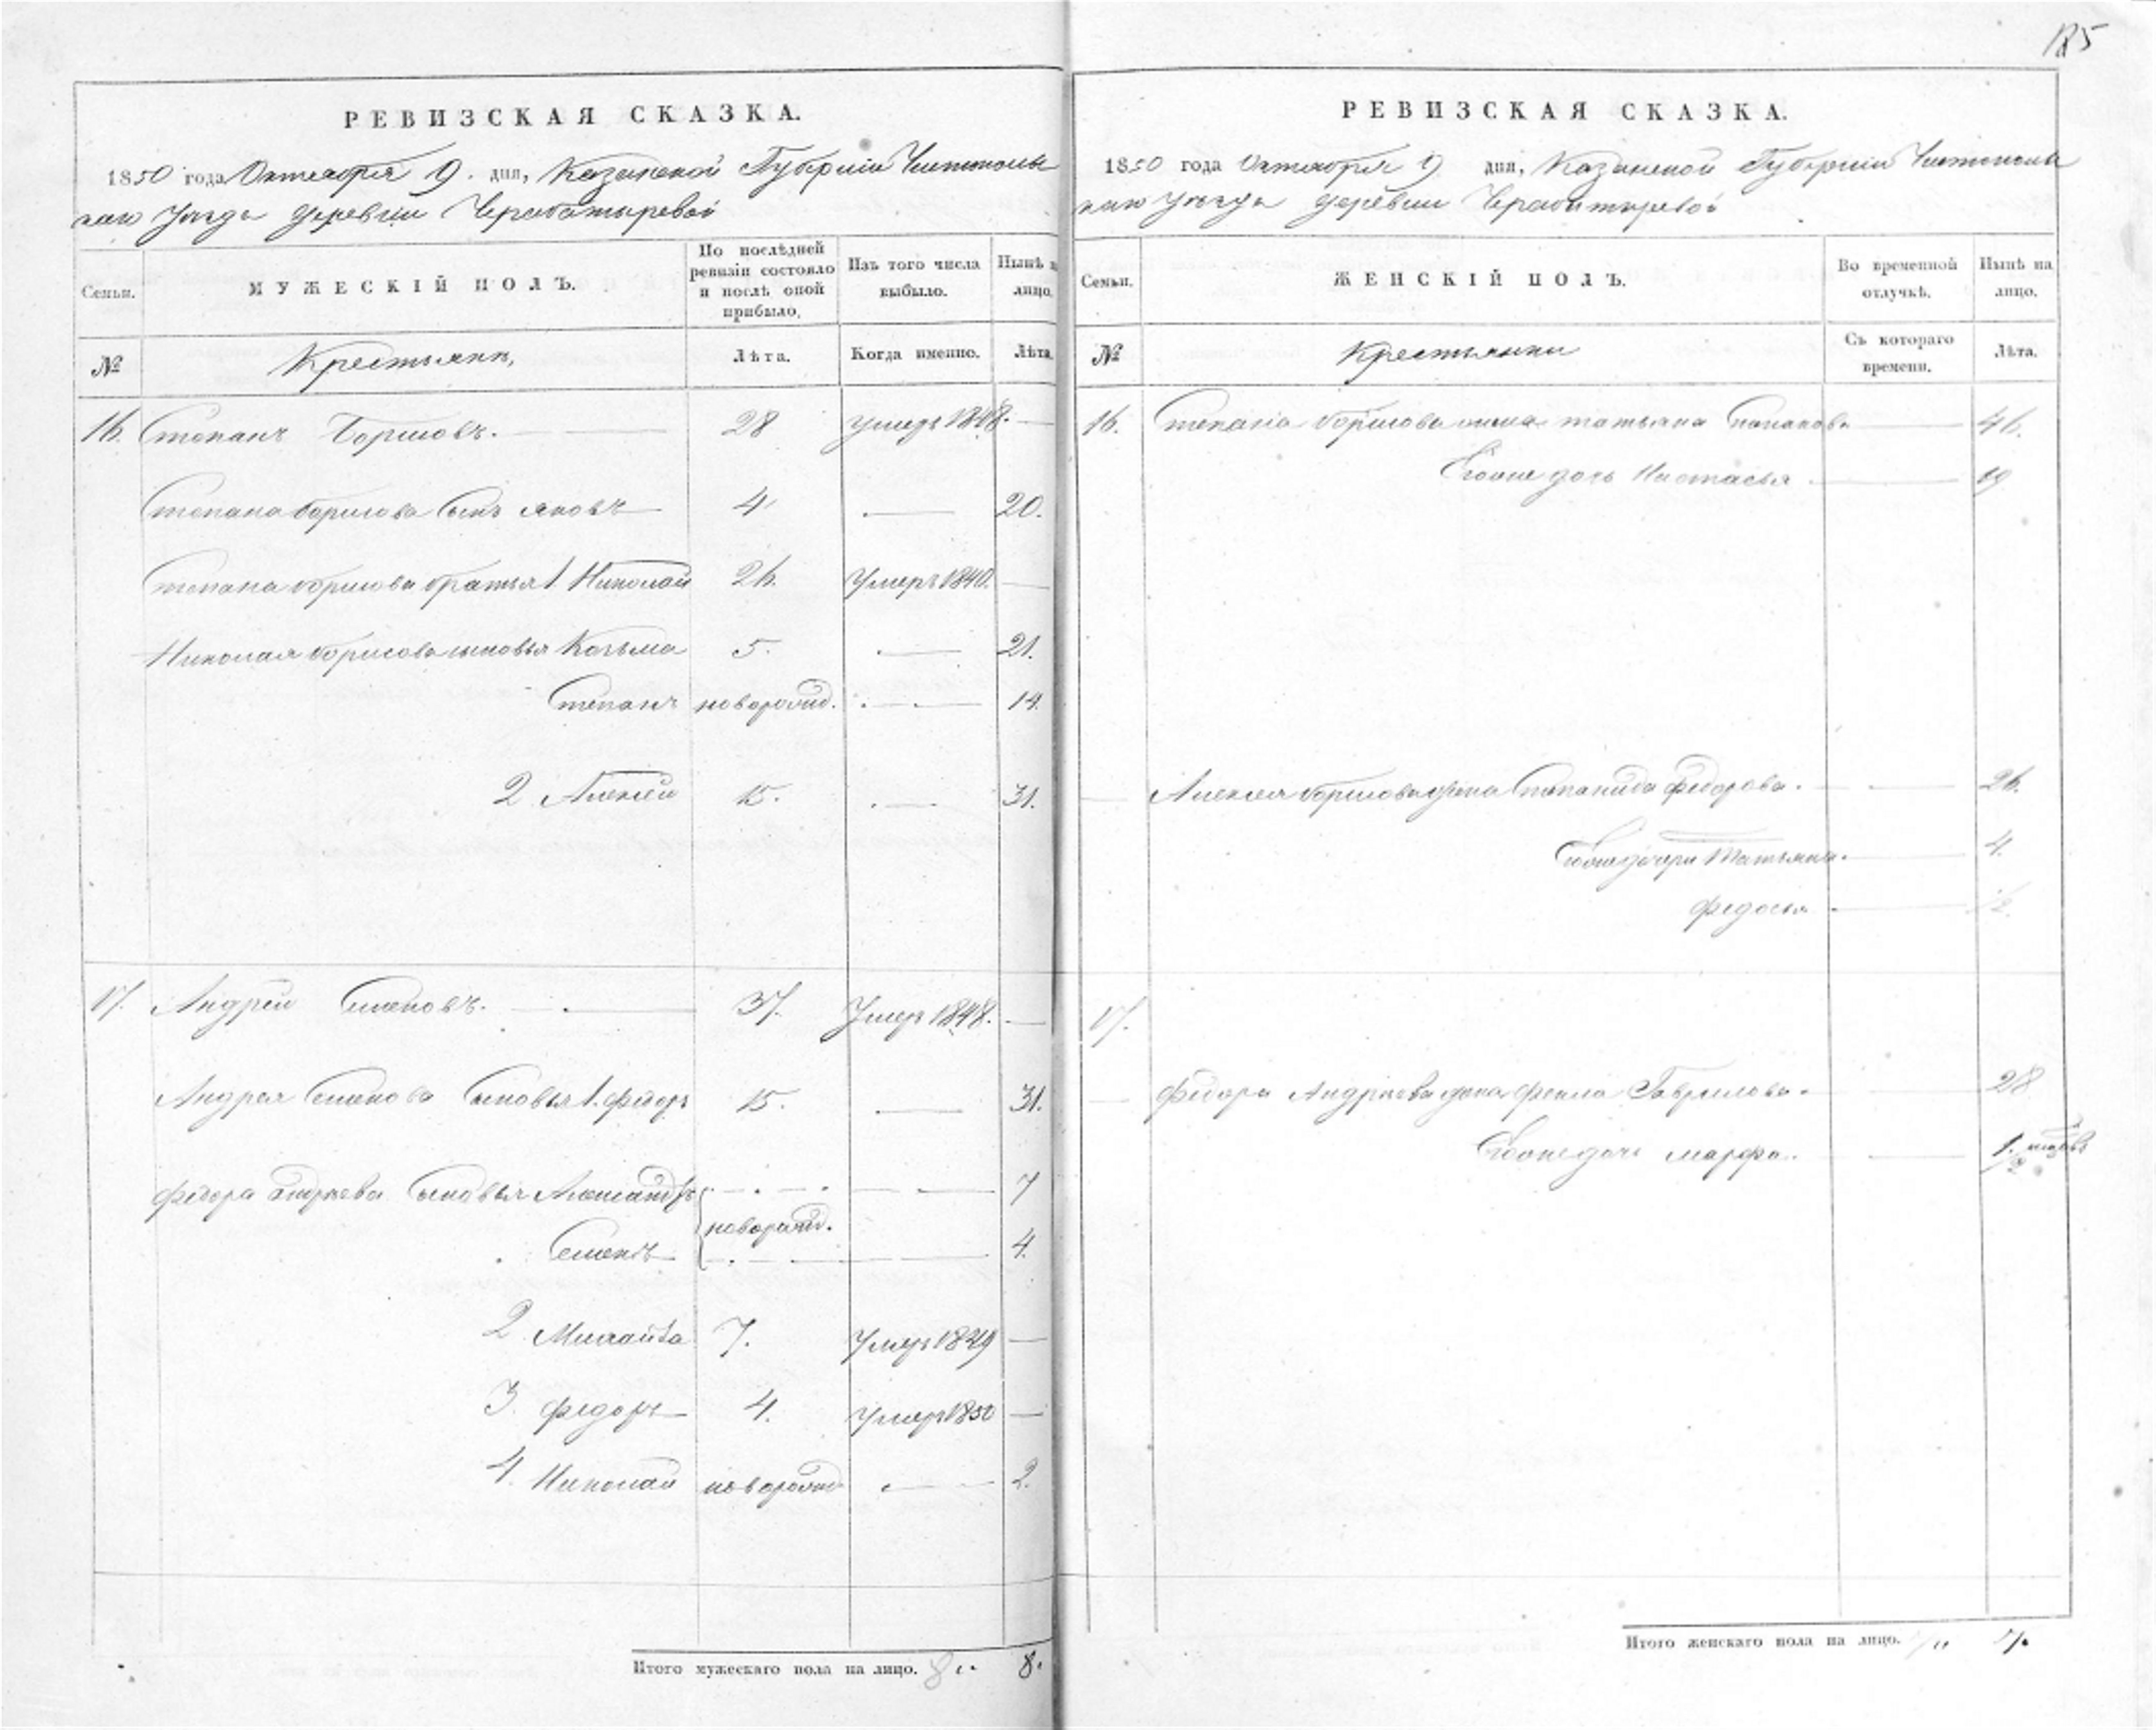 185
РЕВИЗСКАЯ СКАЗКА.
1850 года Октября 9. дня, Казанской Губернии Чистополь
скаго Уѣзда деревни Черабатыревой
Семьи.
МУЖЕСКІЙ ПОЛЪ.
По послѣдней ревизіи состояло и послѣ оной прибыло.
Изъ того числа выбыло.
Нынѣ на лицо.
№
Крестьянъ,
Лѣта.
Когда именно.
Лѣта.
16. Степанъ Борисовъ. 28 умеръ 1848. —
Степана Борисова сынъ Яковъ 4 — 20.
Степана Борисова братья 1 Николай 26. Умеръ 1840. —
Николая Борисова сыновья Козьма 5. — 21.
Степанъ новорожд. — 14.
2 Алексѣй 15. — 31.
17. Андрей Семеновъ. 37. Умеръ 1848. —
Андрея Семенова Сыновья 1. Федоръ 15. — 31.
Федора Андреева Сыновья Александръ — 7
новорожд.
Семенъ — 4.
2 Михайла 7. Умеръ 1849 —
3. Федоръ 4. Умеръ 1850 —
4. Николай новорожд — 2.
Итого мужескаго пола на лицо. 8. 8.
РЕВИЗСКАЯ СКАЗКА.
1850 года Октября 9 дня, Казанской Губерніи Чистополь
скаго Уѣзда деревни Черабатыревой
Семьи.
ЖЕНСКІЙ ПОЛЪ.
Во временной отлучкѣ.
Нынѣ на лицо.
№
Крестьянки
Съ котораго времени.
Лѣта.
16. Степана Борисова жена Татьяна Степанова — 46.
Егоже дочь Настасья — 19
Алексея Борисова жена Степанида Федорова. — 26.
Егоже дочери Татьяна. — 4.
Федосья —
17.
Федора Андреева жена Фекла Гаврилова. — 28
Егоже дочь Марфа. —
Итого женскаго пола на лицо. 7.